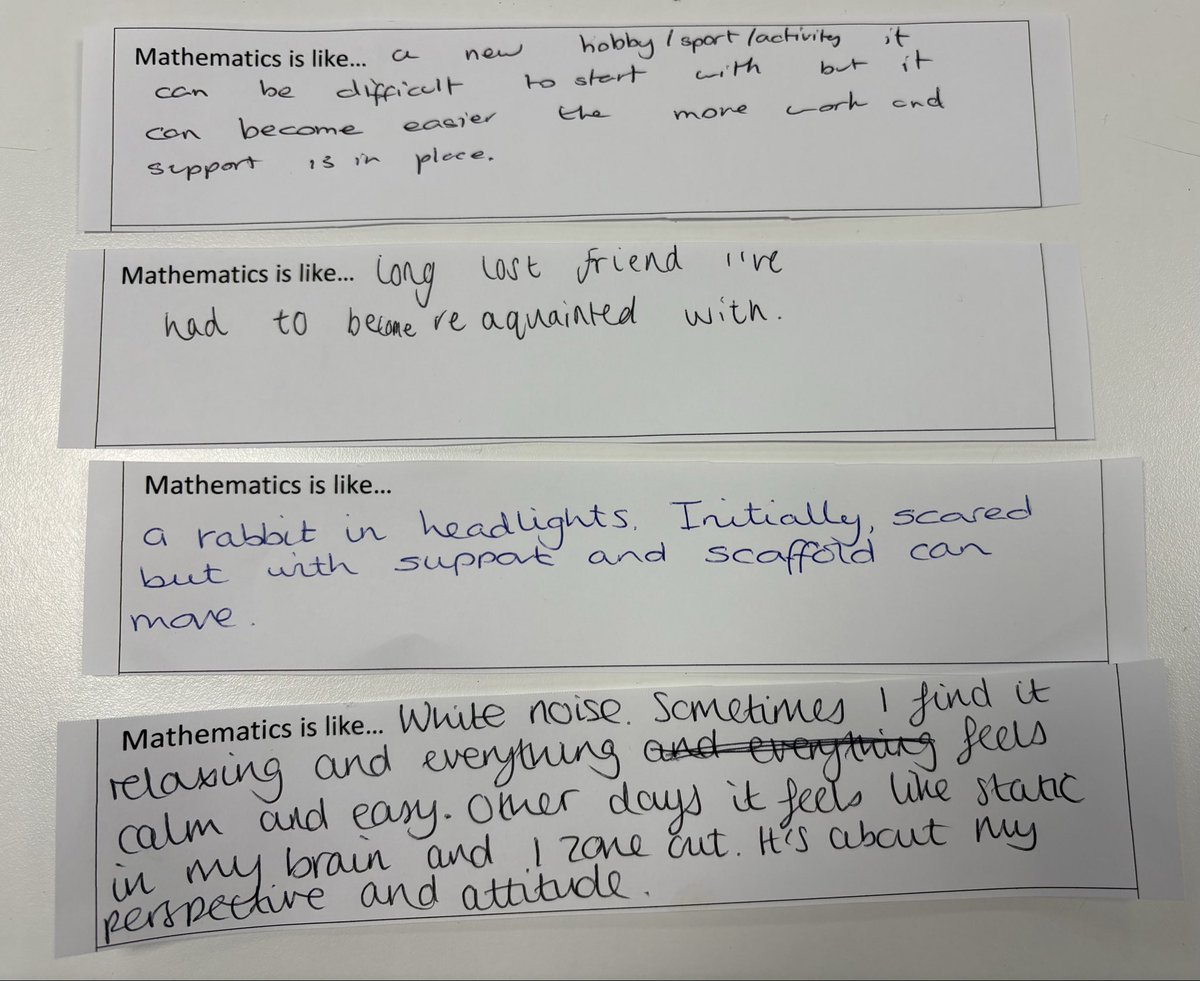 Mathematics is like... a new hobby/sport/activity it
can be difficult to start with but it
can become easier the more work and
support is in place.
Mathematics is like... long lost friend I've
had to become re aquainted with.
Mathematics is like...
a rabbit in headlights. Initially, scared
but with support and scaffold can
move.
Mathematics is like... White noise. Sometimes I find it
relaxing and everything and everything feels
calm and easy. Other days it feels like static
in my brain and I zone out. It's about my
perspective and attitude.